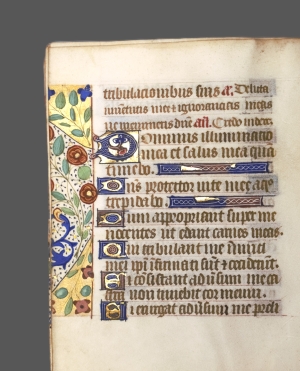 tribulationibus suis a. Delicta
iuventutis mee et ignorantias meas
ne memineris dne. Credo videre
Dominus illuminatio
mea et salus mea quem
timebo.
Dns protector vite mee a quo
trepidabo.
Dum appropriant super me
nocentes ut edant carnes meas.
Qui tribulant me
ipsi infirmati sunt et ceciderunt.
Si consistant adversum me
castra non timebit cor meum.
Si exurgat adversum me preli